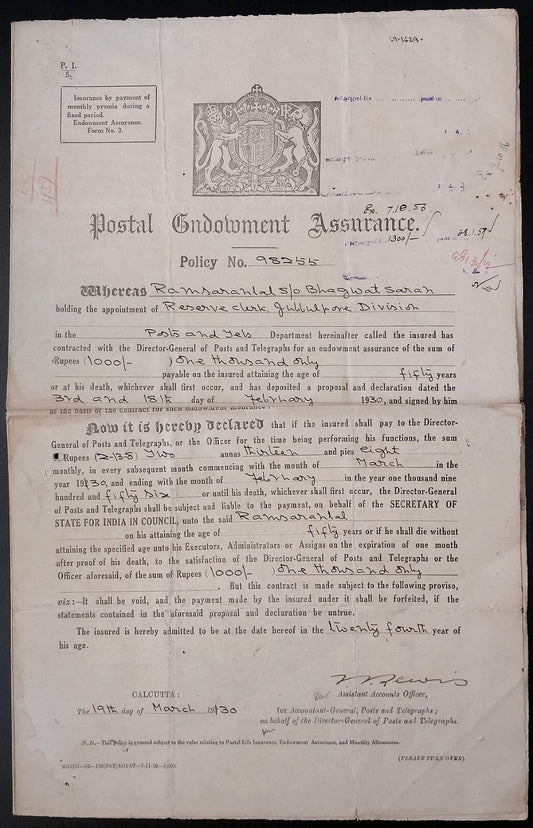 P. I.
5.
Insurance by payment of
monthly premia during a
fixed period.
Endowment Assurance.
Form No. 3.
Postal Endowment Assurance.
1300/-
Policy No. 98255
Whereas Ramsaranlal S/o Bhagwat Saran
holding the appointment of Reserve clerk, Jubbulpore Division
in the Posts and Tels Department hereinafter called the insured has
contracted with the Director-General of Posts and Telegraphs for an endowment assurance of the sum of
Rupees (1000/- ) One thousand only
payable on the insured attaining the age of fifty years
or at his death, whichever shall first occur, and has deposited a proposal and declaration dated the
3rd and 18th day of February 1930, and signed by him
as the basis of the contract for such endowment assurance.
Now it is hereby declared that if the insured shall pay to the Director-
General of Posts and Telegraphs, or the Officer for the time being performing his functions, the sum
Rupees (2-13-8) Two annas thirteen and pies eight
monthly, in every subsequent month commencing with the month of March in the
year 1930, and ending with the month of February in the year one thousand nine
hundred and fifty six or until his death, whichever shall first occur, the Director-General
of Posts and Telegraphs shall be subject and liable to the payment, on behalf of the SECRETARY OF
STATE FOR INDIA IN COUNCIL, unto the said Ramsaranlal
on his attaining the age of fifty years or if he shall die without
attaining the specified age unto his Executors, Administrators or Assigns on the expiration of one month
after proof of his death, to the satisfaction of the Director-General of Posts and Telegraphs or the
Officer aforesaid, of the sum of Rupees (1000/- ) One thousand only
But this contract is made subject to the following proviso,
viz:—It shall be void, and the payment made by the insured under it shall be forfeited, if the
statements contained in the aforesaid proposal and declaration be untrue.
The insured is hereby admitted to be at the date hereof in the twenty fourth year of
his age.
CALCUTTA:
The 19th day of March 1930
Assistant Accounts Officer,
for Accountant-General, Posts and Telegraphs;
on behalf of the Director-General of Posts and Telegraphs.
N.B.—This policy is granted subject to the rules relating to Postal Life Insurance, Endowment Assurance, and Monthly Allowances.
(PLEASE TURN OVER).